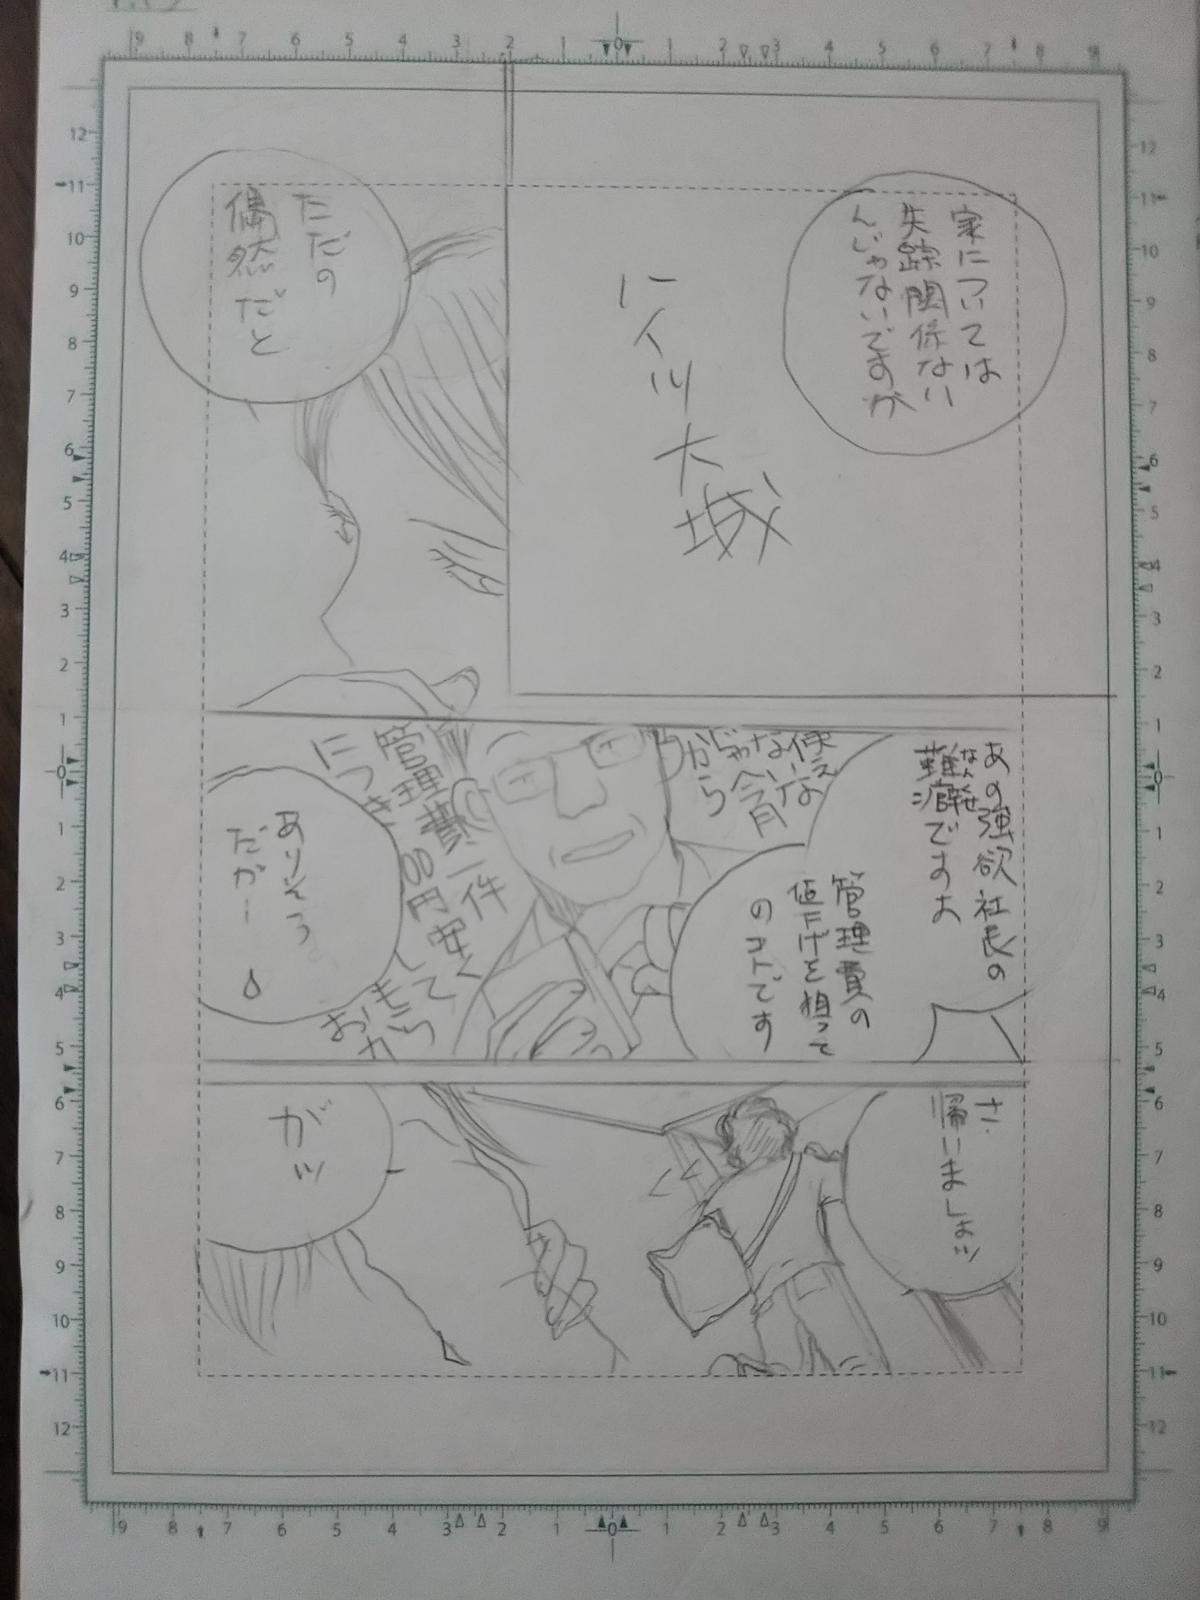 家については
失踪関係ない
んじゃないですか
ただの
偶然だと
あの強欲社長の
難癖ですよ
なんくせ
管理費の
値下げを狙って
のコトです
使えな
ない な
じゃ今月
から
管理費一件
につき
円安く
して
もらう
おか
ありそう
だがー
さ
帰いましょッ
がッ